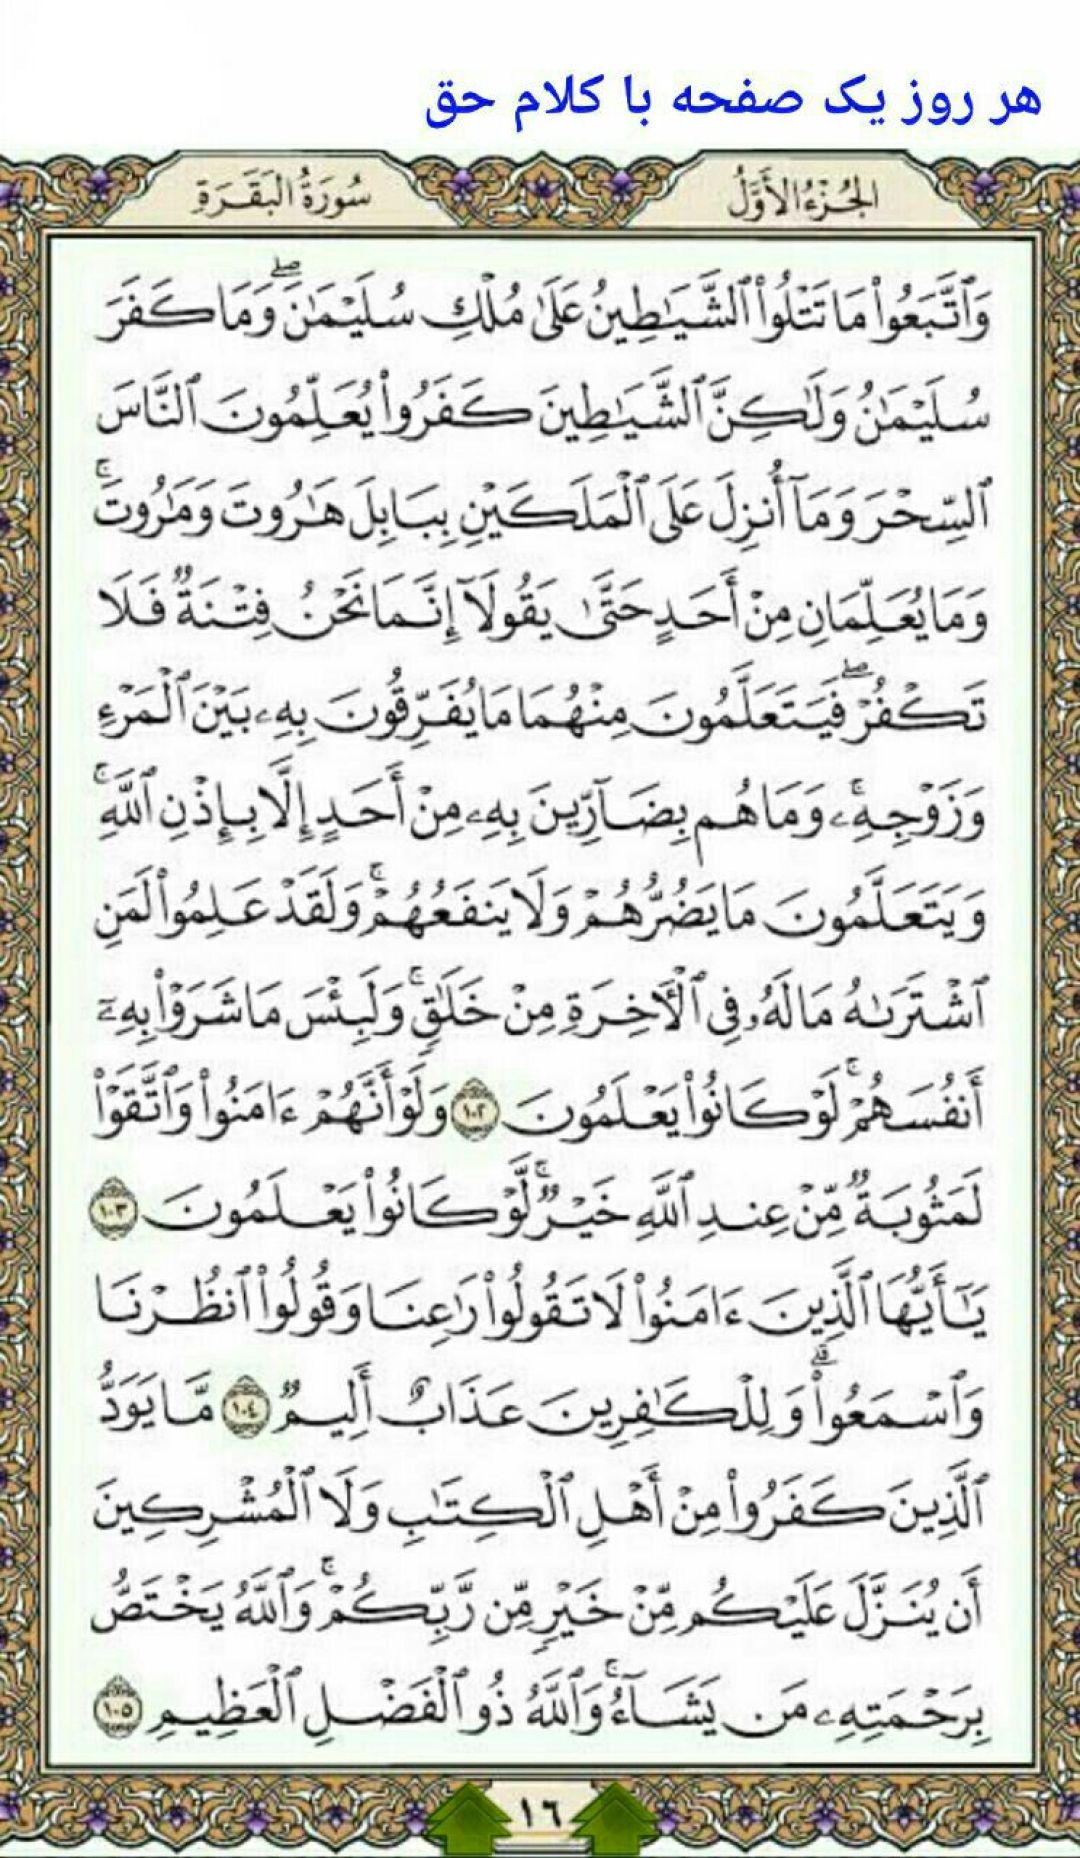 هر روز یک صفحه با کلام حق
الجُزْءُ الأَوَّلُ
سُورَةُ البَقَرَةِ
وَٱتَّبَعُوا۟ مَا تَتْلُوا۟ ٱلشَّيَٰطِينُ عَلَىٰ مُلْكِ سُلَيْمَٰنَ ۖ وَمَا كَفَرَ
سُلَيْمَٰنُ وَلَٰكِنَّ ٱلشَّيَٰطِينَ كَفَرُوا۟ يُعَلِّمُونَ ٱلنَّاسَ
ٱلسِّحْرَ وَمَآ أُنزِلَ عَلَى ٱلْمَلَكَيْنِ بِبَابِلَ هَٰرُوتَ وَمَٰرُوتَ ۚ
وَمَا يُعَلِّمَانِ مِنْ أَحَدٍ حَتَّىٰ يَقُولَآ إِنَّمَا نَحْنُ فِتْنَةٌ فَلَا
تَكْفُرْ ۖ فَيَتَعَلَّمُونَ مِنْهُمَا مَا يُفَرِّقُونَ بِهِۦ بَيْنَ ٱلْمَرْءِ
وَزَوْجِهِۦ ۚ وَمَا هُم بِضَآرِّينَ بِهِۦ مِنْ أَحَدٍ إِلَّا بِإِذْنِ ٱللَّهِ ۚ
وَيَتَعَلَّمُونَ مَا يَضُرُّهُمْ وَلَا يَنفَعُهُمْ ۚ وَلَقَدْ عَلِمُوا۟ لَمَنِ
ٱشْتَرَىٰهُ مَا لَهُۥ فِى ٱلْءَاخِرَةِ مِنْ خَلَٰقٍ ۚ وَلَبِئْسَ مَا شَرَوْا۟ بِهِۦٓ
أَنفُسَهُمْ ۚ لَوْ كَانُوا۟ يَعْلَمُونَ ١٠٢ وَلَوْ أَنَّهُمْ ءَامَنُوا۟ وَٱتَّقَوْا۟
لَمَثُوبَةٌ مِّنْ عِندِ ٱللَّهِ خَيْرٌ ۖ لَّوْ كَانُوا۟ يَعْلَمُونَ ١٠٣
يَٰٓأَيُّهَا ٱلَّذِينَ ءَامَنُوا۟ لَا تَقُولُوا۟ رَٰعِنَا وَقُولُوا۟ ٱنظُرْنَا
وَٱسْمَعُوا۟ ۗ وَلِلْكَٰفِرِينَ عَذَابٌ أَلِيمٌ ١٠٤ مَّا يَوَدُّ
ٱلَّذِينَ كَفَرُوا۟ مِنْ أَهْلِ ٱلْكِتَٰبِ وَلَا ٱلْمُشْرِكِينَ
أَن يُنَزَّلَ عَلَيْكُم مِّنْ خَيْرٍ مِّن رَّبِّكُمْ ۚ وَٱللَّهُ يَخْتَصُّ
بِرَحْمَتِهِۦ مَن يَشَآءُ ۚ وَٱللَّهُ ذُو ٱلْفَضْلِ ٱلْعَظِيمِ ١٠٥
١٦